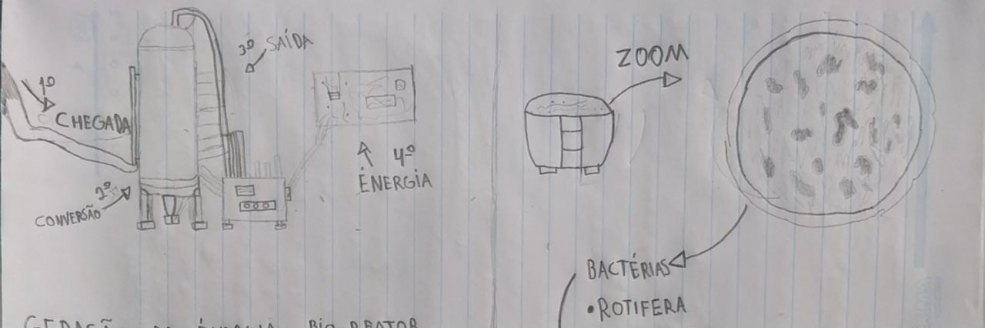 1º
CHEGADA
2º
CONVERSÃO
3º SAÍDA
4º
ÉNERGIA
ZOOM
BACTÉRIAS
•ROTIFERA
BIO REATOR